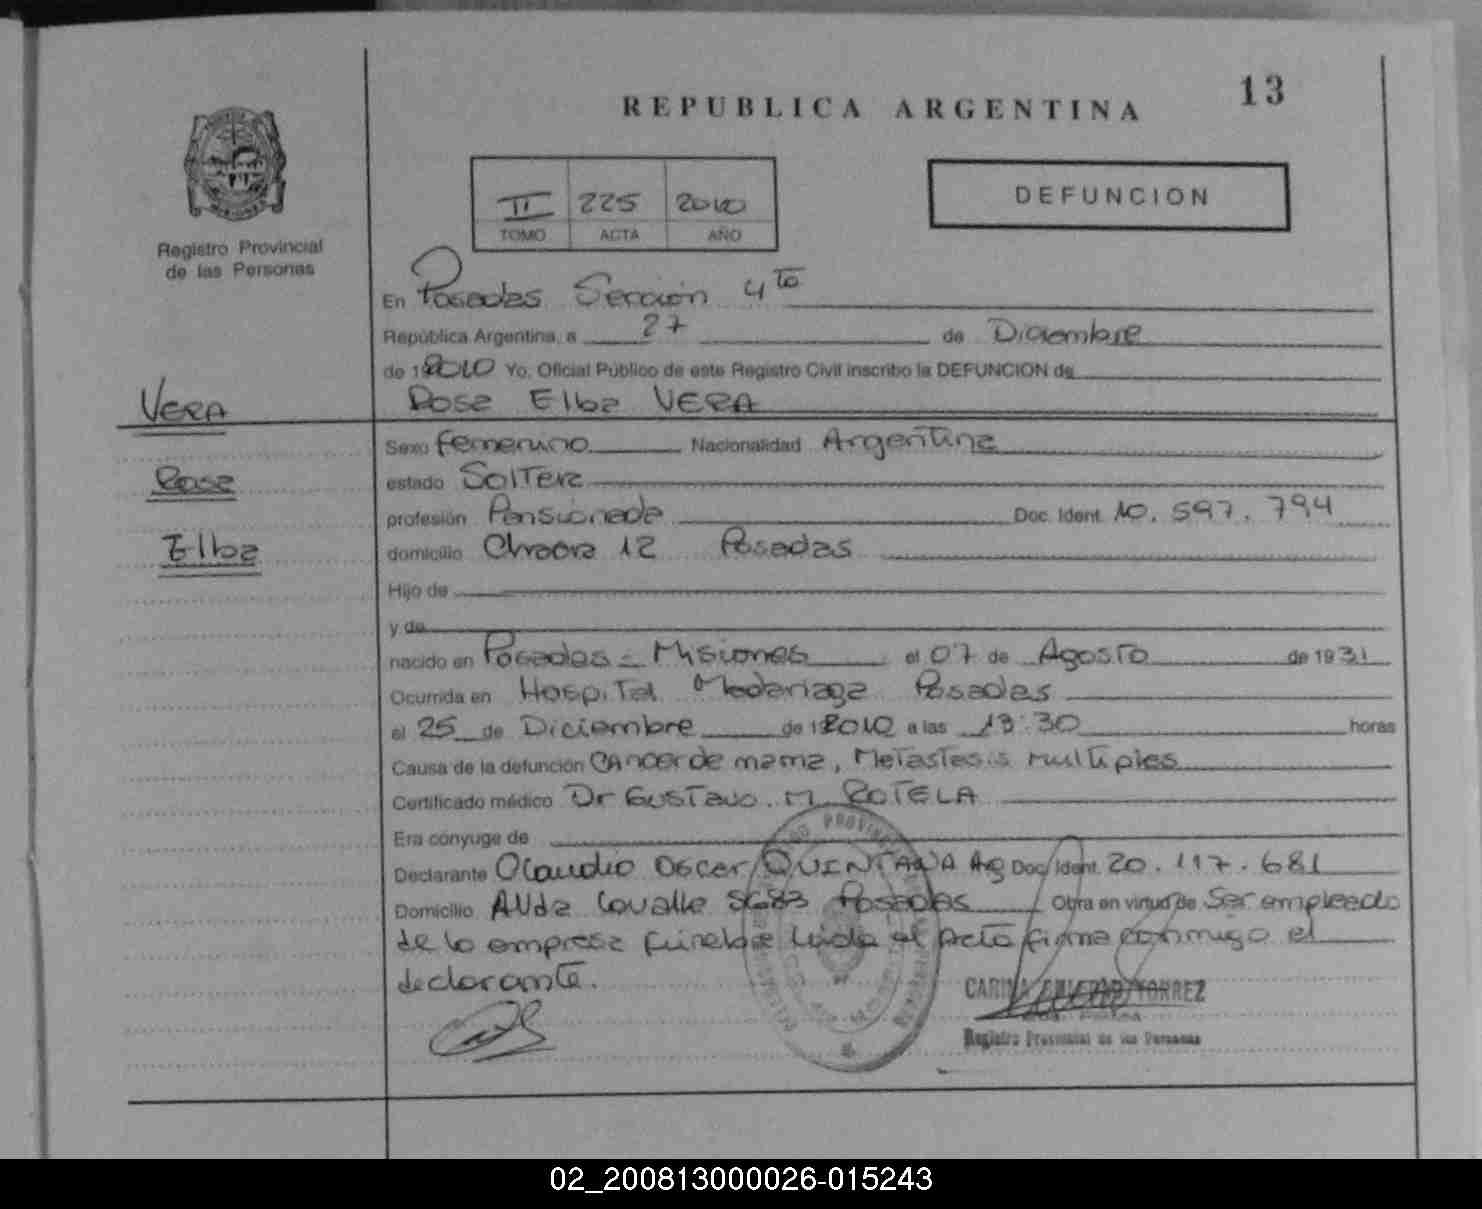 13
REPUBLICA ARGENTINA
DEFUNCION
II 225 2010
TOMO ACTA AÑO
Registro Provincial
de las Personas
En Posadas Sección 4ta
República Argentina, a 27 de Diciembre
de 2010 Yo, Oficial Público de este Registro Civil inscribo la DEFUNCION de
Rosa Elba VERA
VERA
Rosa
Elba
Sexo Femenino Nacionalidad Argentina
estado Soltera
profesión Pensionada Doc. Ident. 10.597.794
domicilio Chacra 12 Posadas
Hijo de
y de
nacido en Posadas - Misiones el 07 de Agosto de 1931
Ocurrida en Hospital Madariaga Posadas
el 25 de Diciembre de 2010 a las 13:30 horas
Causa de la defunción Cancer de mama, Metastasis multiples
Certificado médico Dr Gustavo. M. ROTELA
Era cónyuge de
Declarante Claudio Oscar QUINTANA Arg Doc. Ident. 20.117.681
Domicilio Avda Lavalle 5683 Posadas Obra en virtud de Ser empleado
de la empresa funebre Leida el Acta firma conmigo el
declarante.
CARINA TORREZ
Registro Provincial de las Personas
02_200813000026-015243